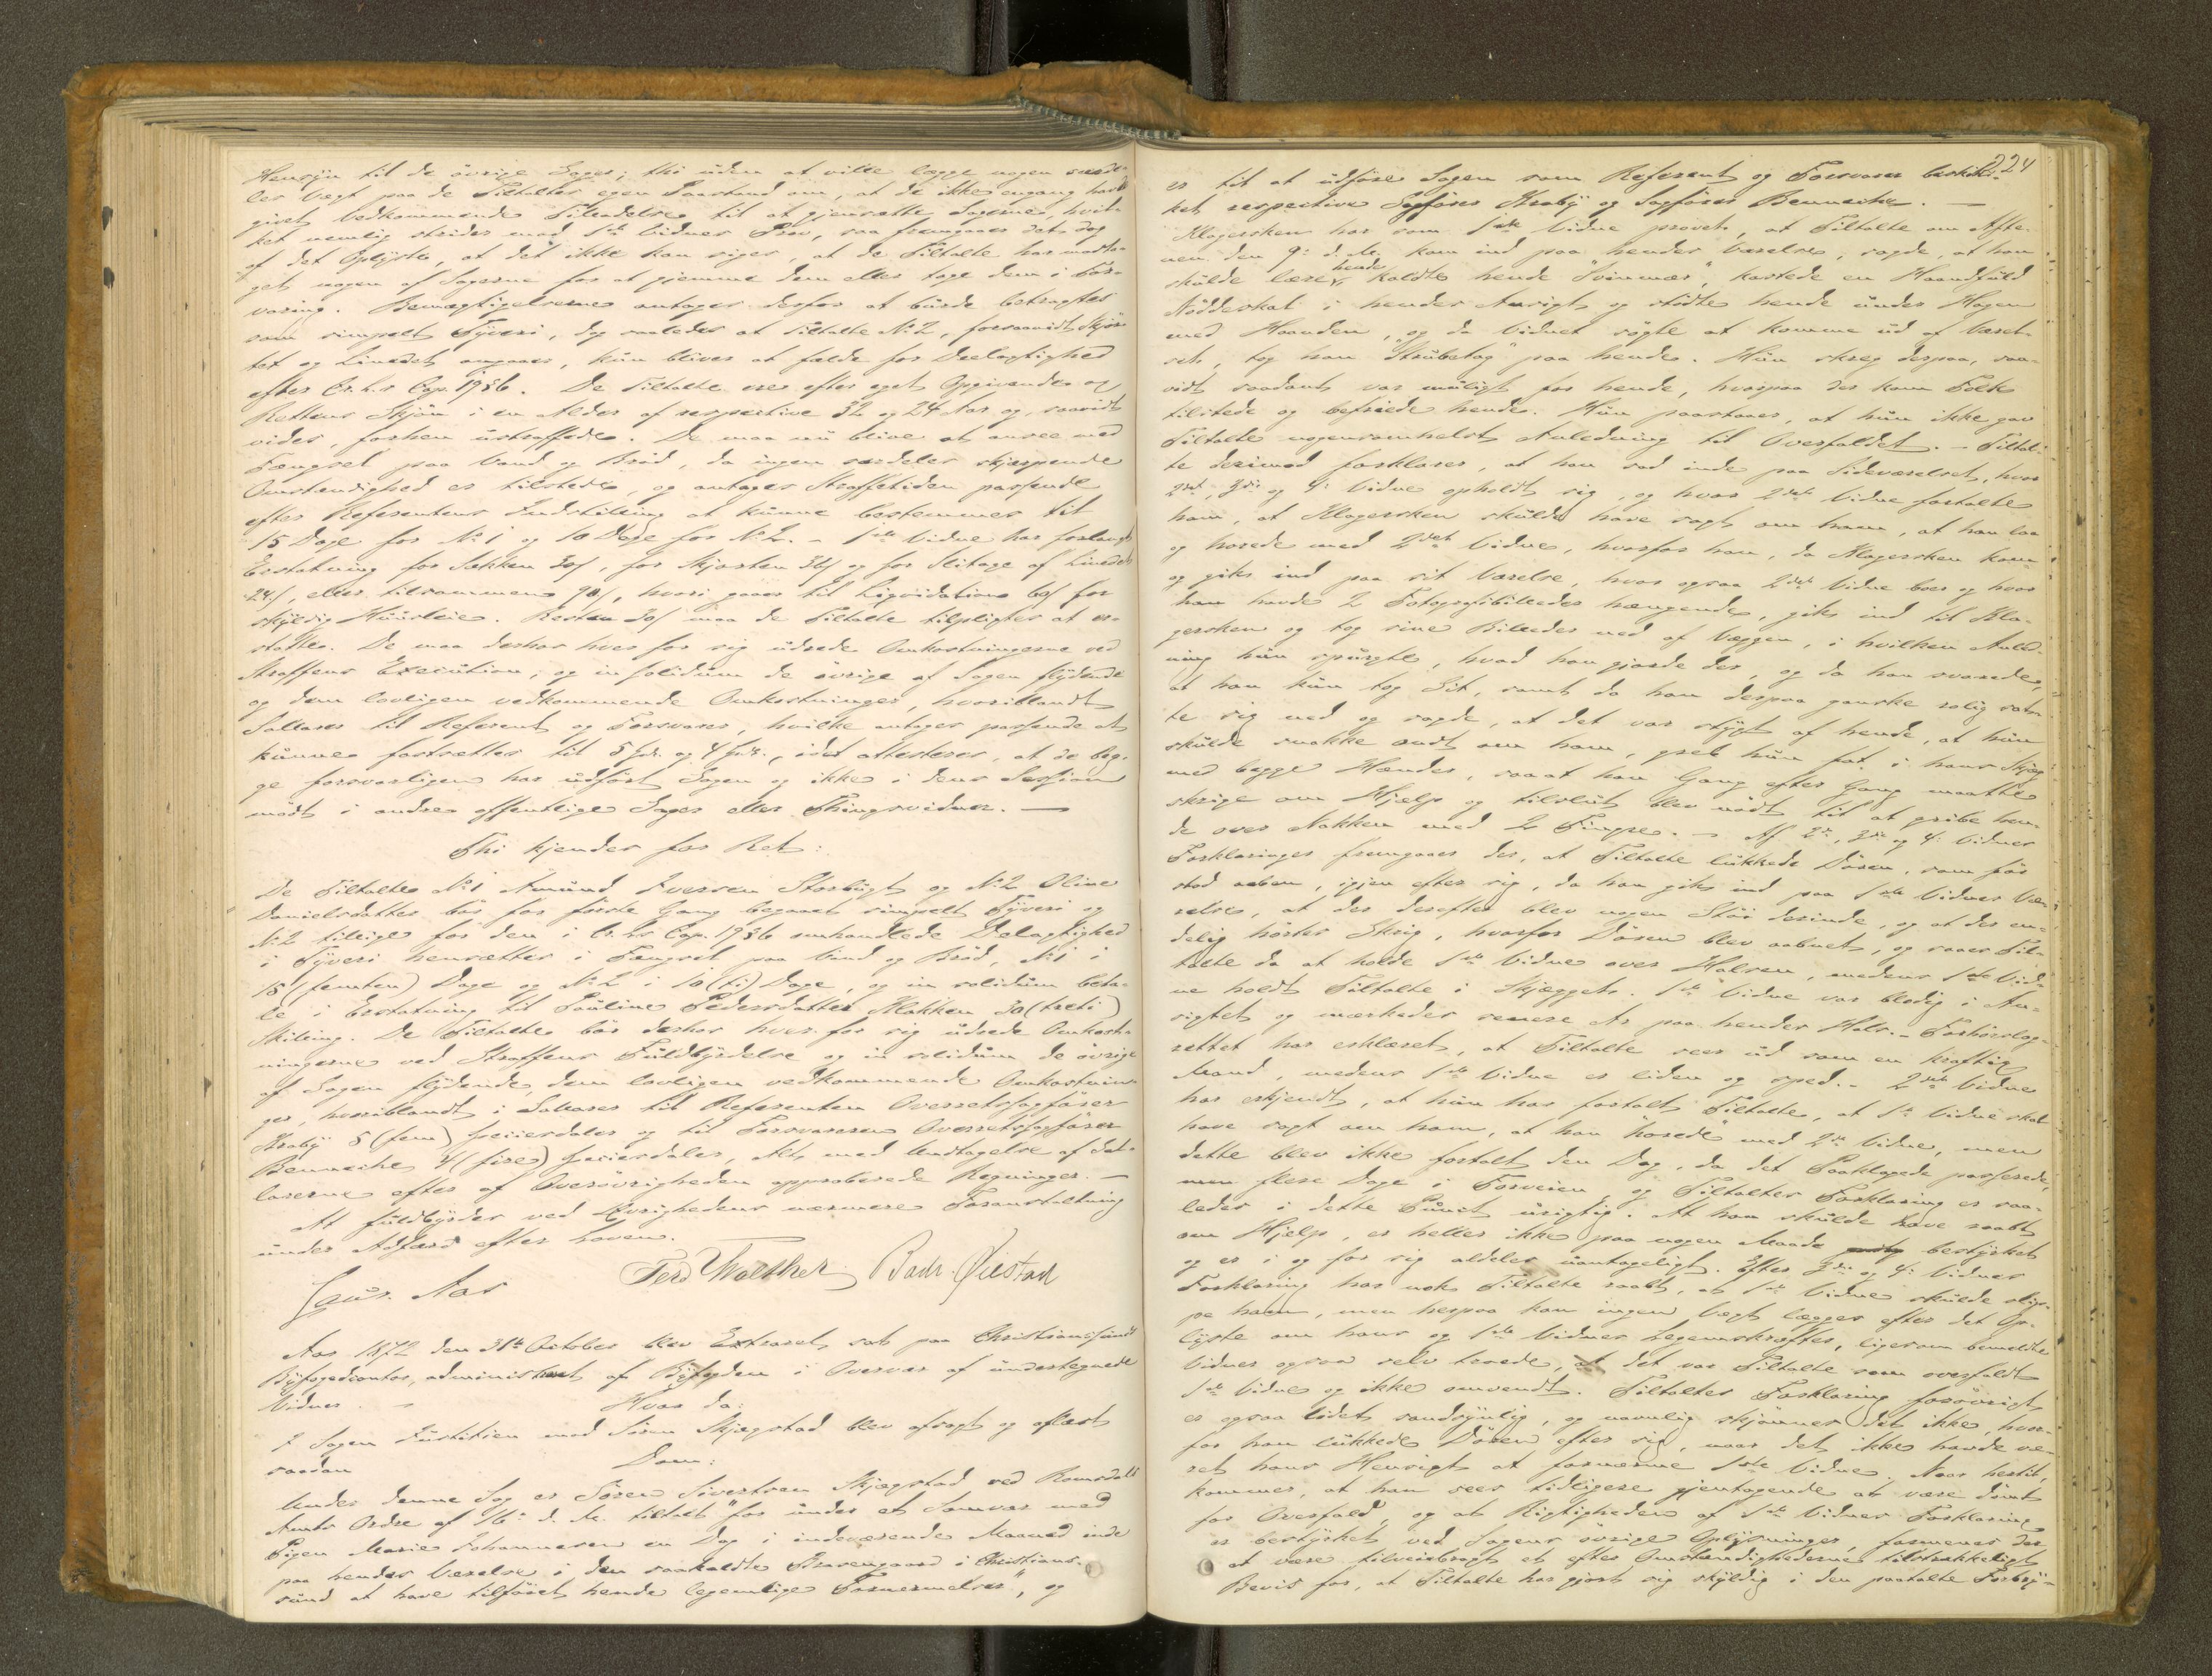 Hensyn til de övrige Sager; thi uden at ville lægge nogen særde-
les Vægt paa de Tiltaltes egen Paastand om, at de ikke engang have
givet Vedkommende Tilladelse til at gjensætte Sagerne, hvil-
ket nemlig strider mod 1ste Vidnes Prov, saa fremgaaer det dog
af det Oplyste, at det ikke kan siges, at de Tiltalte har modta-
get nogen af Sagerne for at gjemme dem eller tage dem i For-
varing. Bemægtigelserne antages derfor at burde betragtes
som simpelt Tyveri, dog saaledes at Tiltalte No 2, forsaavidt Skjör-
tet og Linedet angaaer, kun bliver at fælde for Deelagtighed
efter Cr.L.s Cap. 19 § 6. De Tiltalte ere efter eget Opgivende og
Rettens Skjön i en Alder af respective 32 og 24 Aar og, saavidt
vides, forhen ustraffede. De maa nu blive at ansee med
Fængsel paa Vand og Bröd, da ingen særdeles skjærpende
Omstændighed er tilstede, og antages Straffetiden passende
efter Referentens Indstilling at kunne bestemmes til
15 Dage for No 1 og 10 Dage for No 2. - 1ste Vidne har forlangt
Erstatning for Sækken 30 s, for Skjorten 36 s og for Slitage af Linedet
24 s, eller tilsammen 90 s, hvori gaaer til Liqvidation 60 s for
skyldig Huusleie. Resten 30 s maa de Tiltalte tilpligtes at er-
statte. De maa derhos hver for sig udrede Omkostningerne ved
Straffens Execution, og in solidum de övrige af Sagen flydende
og dem lovligen vedkommende Omkostninger, hvoriblandt
Sallarer til Referent og Forsvarer, hvilke antages passende at
kunne fastsættes til 5 Spd. og 4 Spd., idet attesteres, at de beg-
ge forsvarligen har udfört Sagen og ikke i dens Session
mödt i andre offentlige Sager eller Thingsvidner. —
Thi kjendes for Ret:
De Tiltalte No 1 Amund Iversen Storbugt og No 2 Oline
Danielsdatter bör for förste Gang begaaet simpelt Tyveri og
No 2 tillige for den i Cr.L.s Cap. 19 § 6 omhandlede Delagtighed
i Tyveri hensættes i Fængsel paa Vand og Bröd, No 1 i
15 (femten) Dage og No 2 i 10 (ti) Dage, og in solidum beta-
le i Erstatning til Pauline Pedersdatter Klakken 30 (treti)
Skilling. De Tiltalte bör derhos hver for sig udrede Omkost-
ningerne ved Straffens Fuldbyrdelse og in solidum de övrige
af Sagen flydende, dem lovligen vedkommende Omkostnin-
ger, hvoriblandt i Sallarer til Referenten Overretssagförer
Kraby 5 (fem) Speciesdaler og til Forsvareren Overretssagförer
Bennecke 4 (fire) Speciesdaler, Alt med Undtagelse af Sal-
larerne efter af Overövrigheden approberede Regninger. —
At fuldbyrdes ved Övrighedens nærmere Foranstaltning
under Adfærd efter Loven.
Laur. Aas Ferd Walther. Badr. Øiestad
Aar 1872 den 31te October blev Extraret sat paa Christianssunds
Byfogedcontor, administreret af Byfogden i Overvær af undertegnede
Vidner. - Hvor da:
I Sagen Justitien mod Sören Skjegstad blev afsagt og aflæst
saadan Dom:
Under denne Sag er Sören Sivertsen Skjegstad ved Romsdals
Amts Ordre af 16: d. M. tiltalt "for under et Samvær med
Pigen Marie Johannesen en Dag i indeværende Maaned inde
paa hendes Værelse i den saakaldte gaard i Christians-
sund at have tilföiet hende legemlige Fornærmelser", og
224
er til at udföre Sagen som Referent og Forsvarer beskik-
ket respective Sagförer Kraby og Sagförer Bennecke. —
Klagersken har som 1ste Vidne provet, at Tiltalte om Afte-
nen den 9: d. M. kom ind paa hendes Værelse, sagde, at han
skulde lære hende, kaldte hende "Svinmær", kastede en Haandfuld
Nöddeskal i hendes Ansigt og stödte hende under Hagen
med Haanden, og da Vidnet sögte at komme ud af Værel-
set, tog han "Strubetag" paa hende. Hun skreg derpaa, saa-
vidt saadant var muligt for hende, hvorpaa der kom Folk
tilstede og befriede hende. Hun paastaaer, at hun ikke gav
Tiltalte nogensomhelst Anledning til Overfaldet. - Tiltal-
te derimod forklarer, at han sad inde paa Sideværelset, hvor
2det, 3die og 4: Vidne opholdt sig, og hvor 2det Vidne fortalte
ham, at Klagersken skulde have sagt om ham, at han laa
og horede med 2det Vidne, hvorfor han, da Klagersken kom
og gik ind paa sit Værelse, hvor ogsaa 2det Vidne boer og hvor
han havde 2 Fotografibilleder hængende, gik ind til Kla-
gersken og tog sine Billeder ned af Væggen, i hvilken Anled-
ning hun spurgte, hvad han gjorde der, og da han svarede,
at han kun tog Sit, samt da han derpaa ganske rolig sat-
te sig ned og sagde, at det var stygt af hende, at hun
skulde snakke ondt om ham, greb hun fat i hans Skjæg
med begge Hænder, saaat han Gang efter Gang maatte
skrige om Hjælp og tilslut blev nödt til at gribe hen-
de over Nakken med 2 Fingre. - Af 2de, 3die og 4: Vidnes
Forklaringer fremgaaer der, at Tiltalte lukkede Dören, som för
stod aaben, igjen efter sig, da han gik ind paa 1ste Vidnes Væ-
relse, at der derefter blev nogen Stöi derinde, og at der en-
delig hörtes Skrig, hvorfor Dören blev aabnet, og saaes Til-
talte da at holde 1ste Vidne over Halsen, medens 1ste Vid-
ne holdt Tiltalte i Skjægget. 1ste Vidne var blodig i An-
sigtet og mærkedes senere Ar paa hendes Hals. - Forhörslag-
rettet har erklæret, at Tiltalte seer ud som en kraftig
Mand, medens 1ste Vidne er liden og sped. - 2det Vidne
har erkjendt, at hun har fortalt Tiltalte, at 1ste Vidne skal
have sagt om ham, at han "horede" med 2det Vidne, men
dette blev ikke fortalt den Dag, da det Paaklagede passerede,
men flere Dage i Forveien og Tiltaltes Forklaring er saa-
ledes i dette Punct urigtig. At han skulde have raabt
om Hjælp, er heller ikke paa nogen Maade bestyrket
og er i og for sig aldeles uantageligt. Efter 3die og 4: Vidnes
Forklaring har nok Tiltalte raabt, at 1ste Vidne skulde slip-
pe ham, men herpaa kan ingen Vægt lægges efter det Op-
lyste om hans og 1ste Vidnes Legemskræfter, ligesom bemeldte
Vidner ogsaa selv troede, at det var Tiltalte som overfaldt
1ste Vidne og ikke omvendt. Tiltaltes Forklaring forövrigt
er ogsaa lidet sandsynlig, og navnlig skjönnes det ikke, hvor-
for han lukkede Dören efter sig, naar det ikke havde væ-
ret hans Hensigt at fornærme 1ste Vidne. Naar hertil
kommer, at han sees tidligere gjentagende at være dömt
for Overfald, og at Rigtigheden af 1ste Vidnes Forklaring
er bestyrket ved Sagens övrige Oplysninger, formenes der
at være tilveiebragt et efter Omstændighederne tilstrækkeligt
Bevis for, at Tiltalte har gjort sig skyldig i den paatalte Forbry-